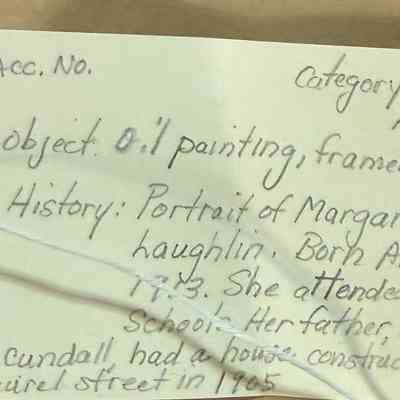 Acc. No. Category
object. Oil painting, frame
History: Portrait of Margar
Laughlin. Born A
She attende
Schools. Her father,
cundall, had a house construc
uirel street in 1905